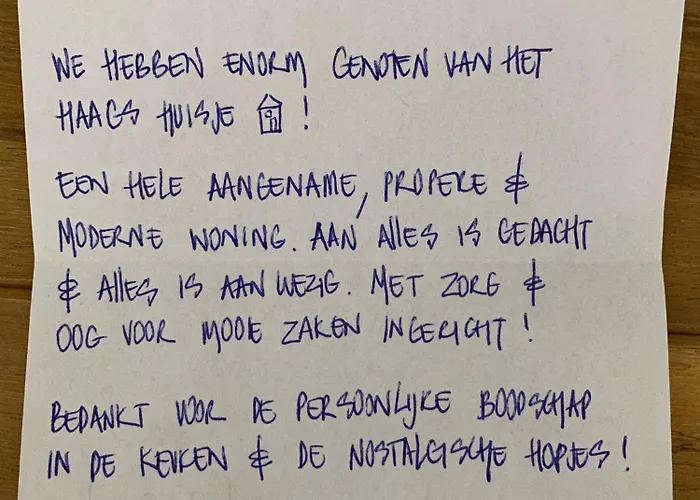 WE HEBBEN ENORM GENOTEN VAN HET
HAAGS HUISJE !
EEN HELE AANGENAME, PROPERE &
MODERNE WONING. AAN ALLES IS GEDACHT
& ALLES IS AANWEZIG. MET ZORG &
OOG VOOR MOOIE ZAKEN INGERICHT !
BEDANKT VOOR DE PERSOONLIJKE BOODSCHAP
IN DE KEUKEN & DE NOSTALGISCHE HOPJES !